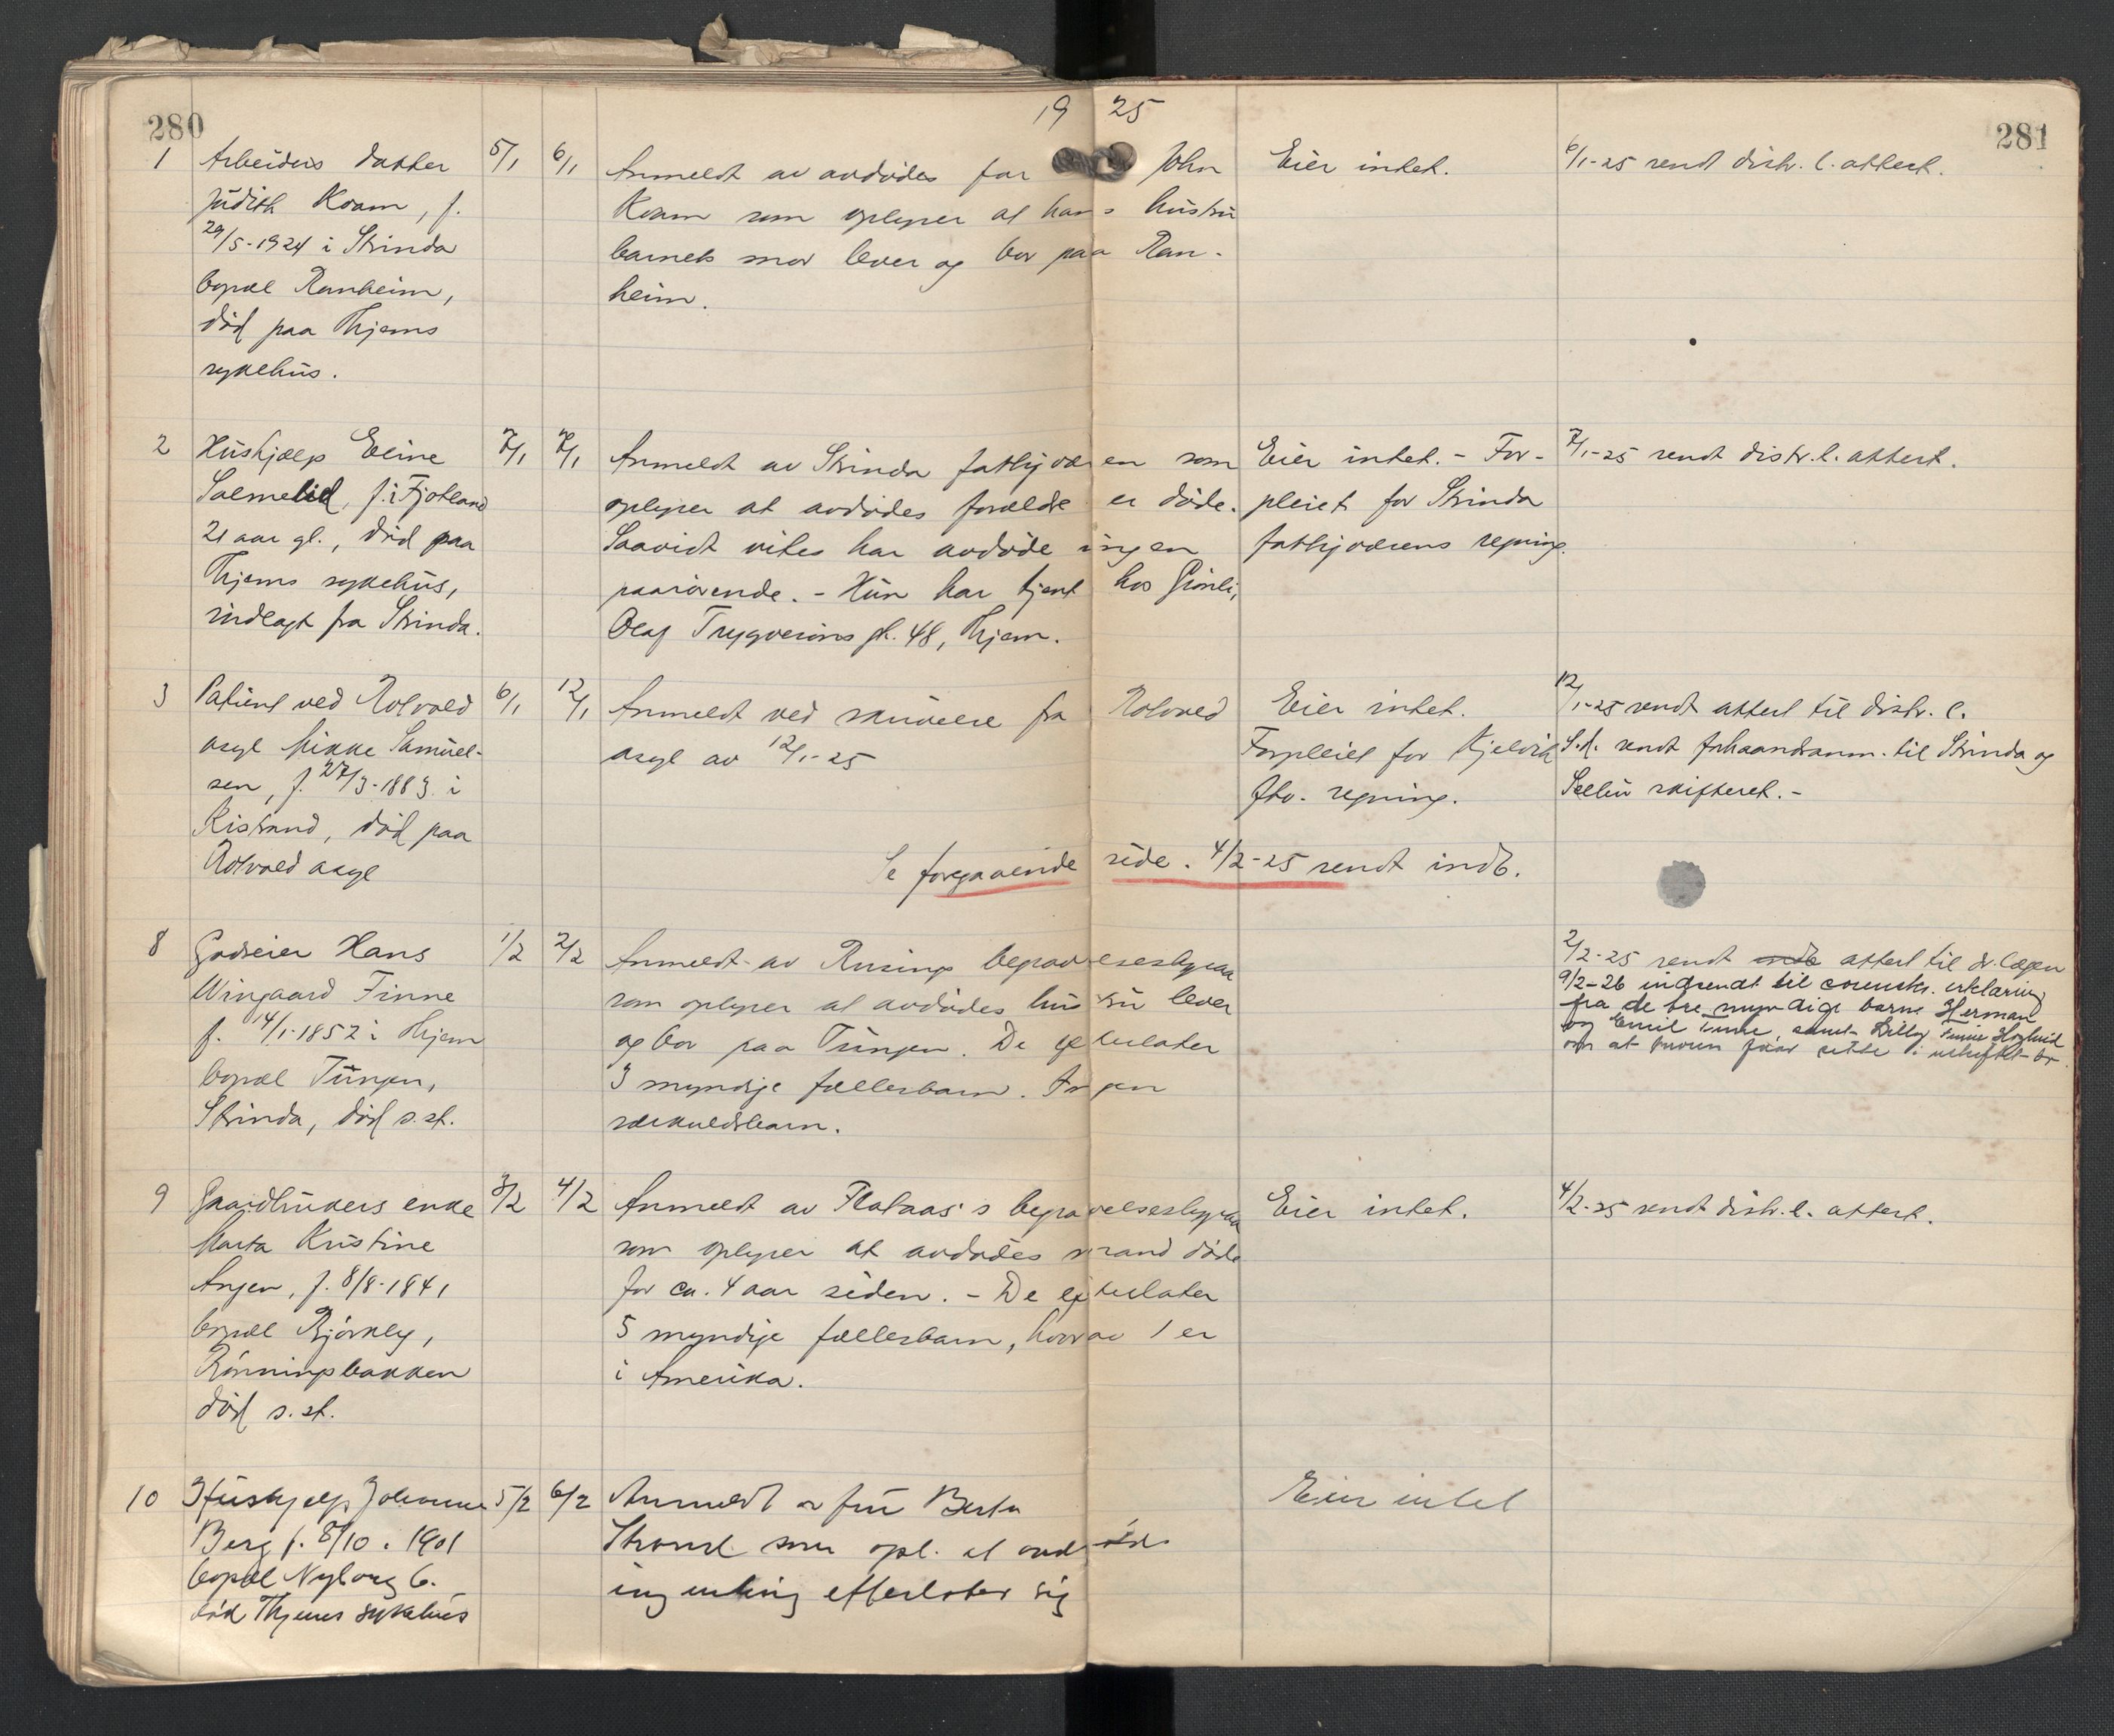 280
19 25
281
1 Arbeiders datter 5/1 6/1 Anmeldt av avdødes far John Eier intet. 6/1-25 sendt distr. l. attest.
Judith Kvam, f. Kvam som oplyser at hans hustru
29/5-1924 i Strinda barnets mor lever og bor paa Ran-
bopæl Ranheim, heim.
død paa Thjems
sykehus.
2 Hushjælp Eline 7/1 7/1 Anmeldt av Strinda fattigvæsen som Eier intet. - For- 7/1-25 sendt distr. l. attest.
Salmelid, f. i Fjotland oplyser at avdødes forældre er døde. pleiet for Strinda
21 aar gl., død paa Saavidt vites har avdøde ingen fattigvæsens regning.
Thjems sykehus, paarørende. - Hun har tjent hos
indlagt fra Strinda. Olav Trygvesøns gt. 48, Thjem.
3 Patient ved Rotvold 6/1 12/1 Anmeldt ved skrivelse fra Rotvold Eier intet. 12/1-25 sendt attest til distr. l.
asyl Mikke Samuel- asyl av 12/1-25 Forpleiet for Kjelvik S.d. sendt forhaandsanm. til Strinda og
sen, f. 27/3-1883 i ftv. regning. skifteret. -
Kistrand, død paa
Rotvold asyl
Se foregaaende side. 4/2-25 sendt indb.
8 Godseier Hans 1/2 2/2 Anmeldt av Rusings begravelsesbyraa 2/2-25 sendt attest til d. lægen
Wingaard Finne som oplyser at avdødes hustru lever 9/2-26 indsendt til erklæring
f. 14/1-1852 i Thjem og bor paa Tungen. De efterlater fra de tre myndige barn Herman
bopæl Tungen, 3 myndige fællesbarn. Ingen og Emil Finne, samt Finne
Strinda, død s. st. særkuldsbarn. om at moren faar sitte i uskiftet bo
9 Gaardbrukers enke 3/2 4/2 Anmeldt av Flataas's begravelsesbyraa Eier intet. 4/2-25 sendt distr. l. attest.
Marta Kristine som oplyser at avdødes mand døde
Angen, f. 8/8-1841 for ca. 4 aar siden. - De efterlater
bopæl Bjørkly, 5 myndige fællesbarn, hvorav 1 er
Rønningsbakken i Amerika.
død s. st.
10 Hushjelp Johanne 5/2 6/2 Anmeldt av fru Berta Eier intet
Berg f. 8/10. 1901 Strand som opl. at avdøde
bopæl Nyborg 6. ingenting efterlater sig
død Thjems sykehus